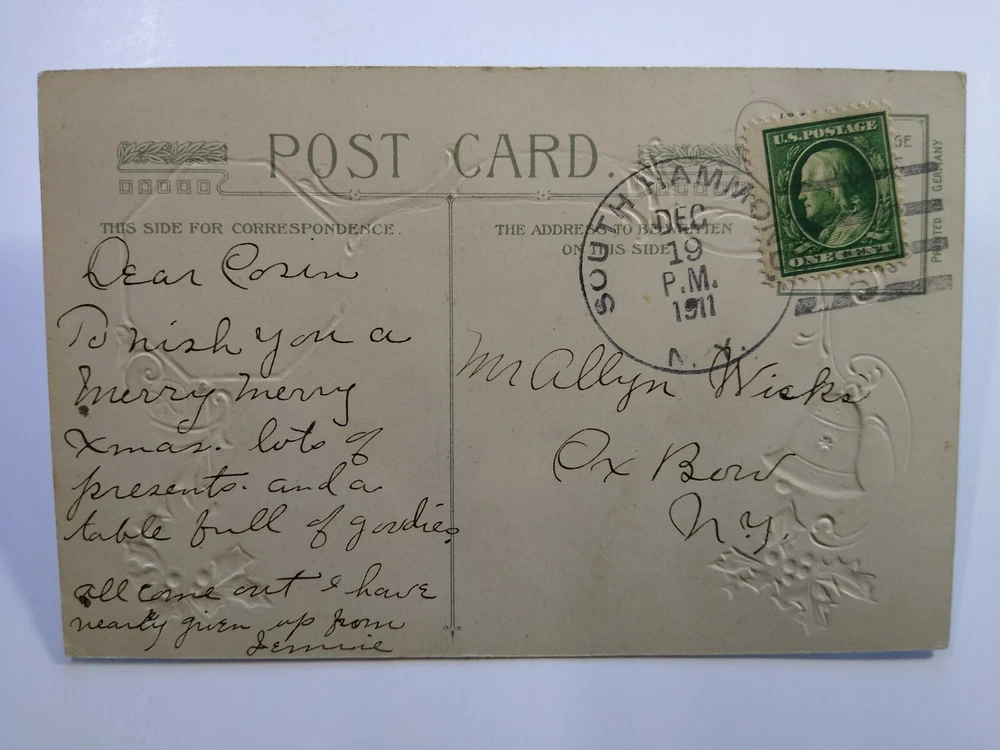 POST CARD.
THIS SIDE FOR CORRESPONDENCE.
THE ADDRESS TO BE WRITTEN
ON THIS SIDE
PRINTED IN GERMANY
U.S. POSTAGE
ONE CENT
SOUTH HAMMOND
DEC
19
P.M.
1911
N.Y.
Dear Cosin
To wish you a
Merry Merry
Xmas. lots of
presents. and a
table full of goodies
all come out I have
nearly given up from
Jennie
Mr Allyn Wicks
Ox Bow
N.Y.